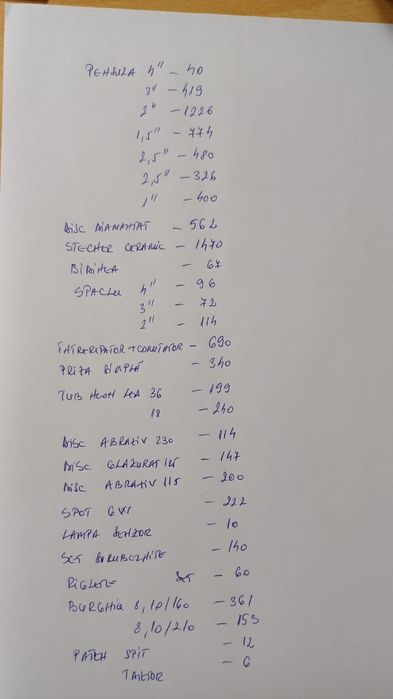 PENSULA 4" - 40
3" - 419
2" - 1226
1,5" - 774
2,5" - 480
2,5" - 326
1" - 400
DISC DIAMANTAT - 562
STECHER CERAMIC - 1470
BIDINEA - 67
SPACLU 4" - 96
3" - 72
2" - 114
INTRERUPATOR + COMUTATOR - 690
PRIZA SIMPLĂ - 340
TUB NEON LED 36 - 199
18 - 240
DISC ABRAZIV 230 - 114
DISC GLAZURAT 125 - 147
DISC ABRAZIV 115 - 200
SPOT - 222
LAMPA SENZOR - 10
SET SURUBELNITE - 140
RIGLETE SET - 60
BURGHIU 8,10/160 - 361
8,10/210 - 153
PATEN SPIT - 12
TAIETOR - 6